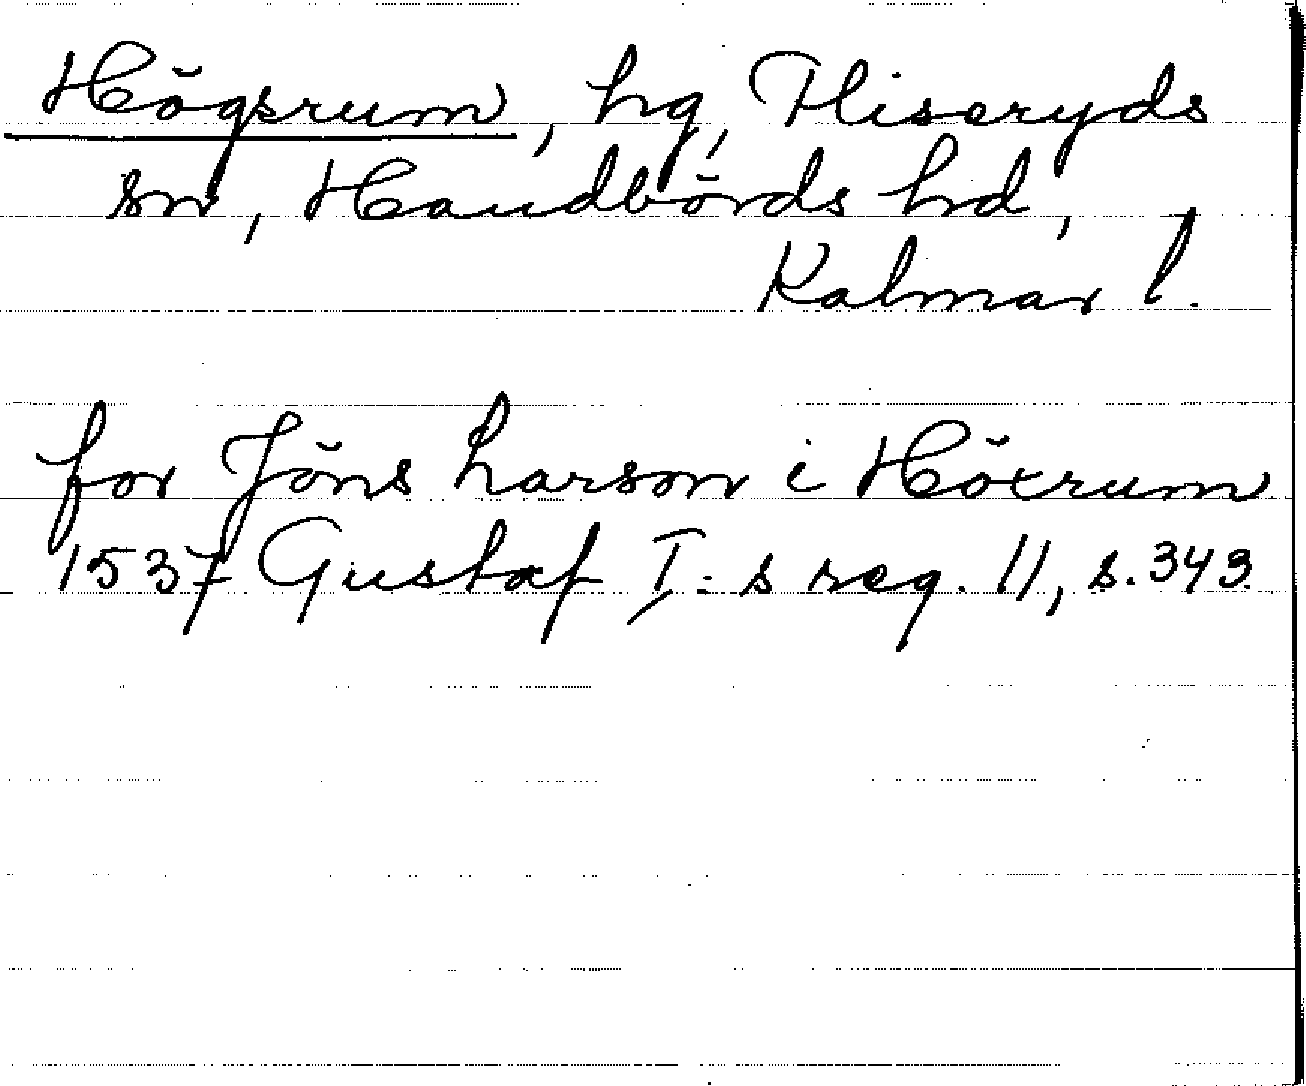 Högsrum, hg, Fliseryds
sn, Handbörds hd,
Kalmar l.
for Jöns Larson i Höxrum
1537 Gustaf I: s reg. 11, s. 343.